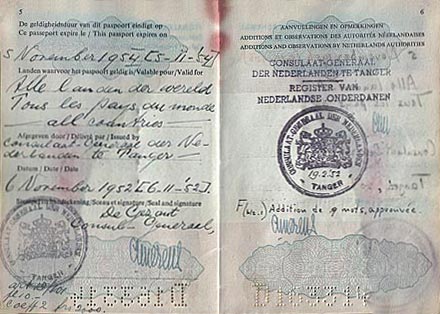 5
De geldigheidsduur van dit paspoort eindigt op
Ce passeport expire le / This passport expires on
5 November 1954 (5-11-'54)
Landen waarvoor het paspoort geldig is/Valable pour/Valid for
Alle landen der wereld
Tous les pays du monde
all countries
Afgegeven door / Délivré par / Issued by
Consulaat-Generaal der Ne-
derlanden te Tanger
Datum / Date / Date
6 November 1952 (6-11-'52)
De Consul-Generaal
CONSULAAT-GENERAAL DER NEDERLANDEN
TANGER
6
AANVULLINGEN EN OPMERKINGEN
ADDITIONS ET OBSERVATIONS DES AUTORITÉS NÉERLANDAISES
ADDITIONS AND OBSERVATIONS BY NETHERLANDS AUTHORITIES
CONSULAAT-GENERAAL
DER NEDERLANDEN TE TANGER
REGISTER VAN
NEDERLANDSE ONDERDANEN
CONSULAAT-GENERAAL DER NEDERLANDEN
TANGER
Addition de 9 mots, approuvée.